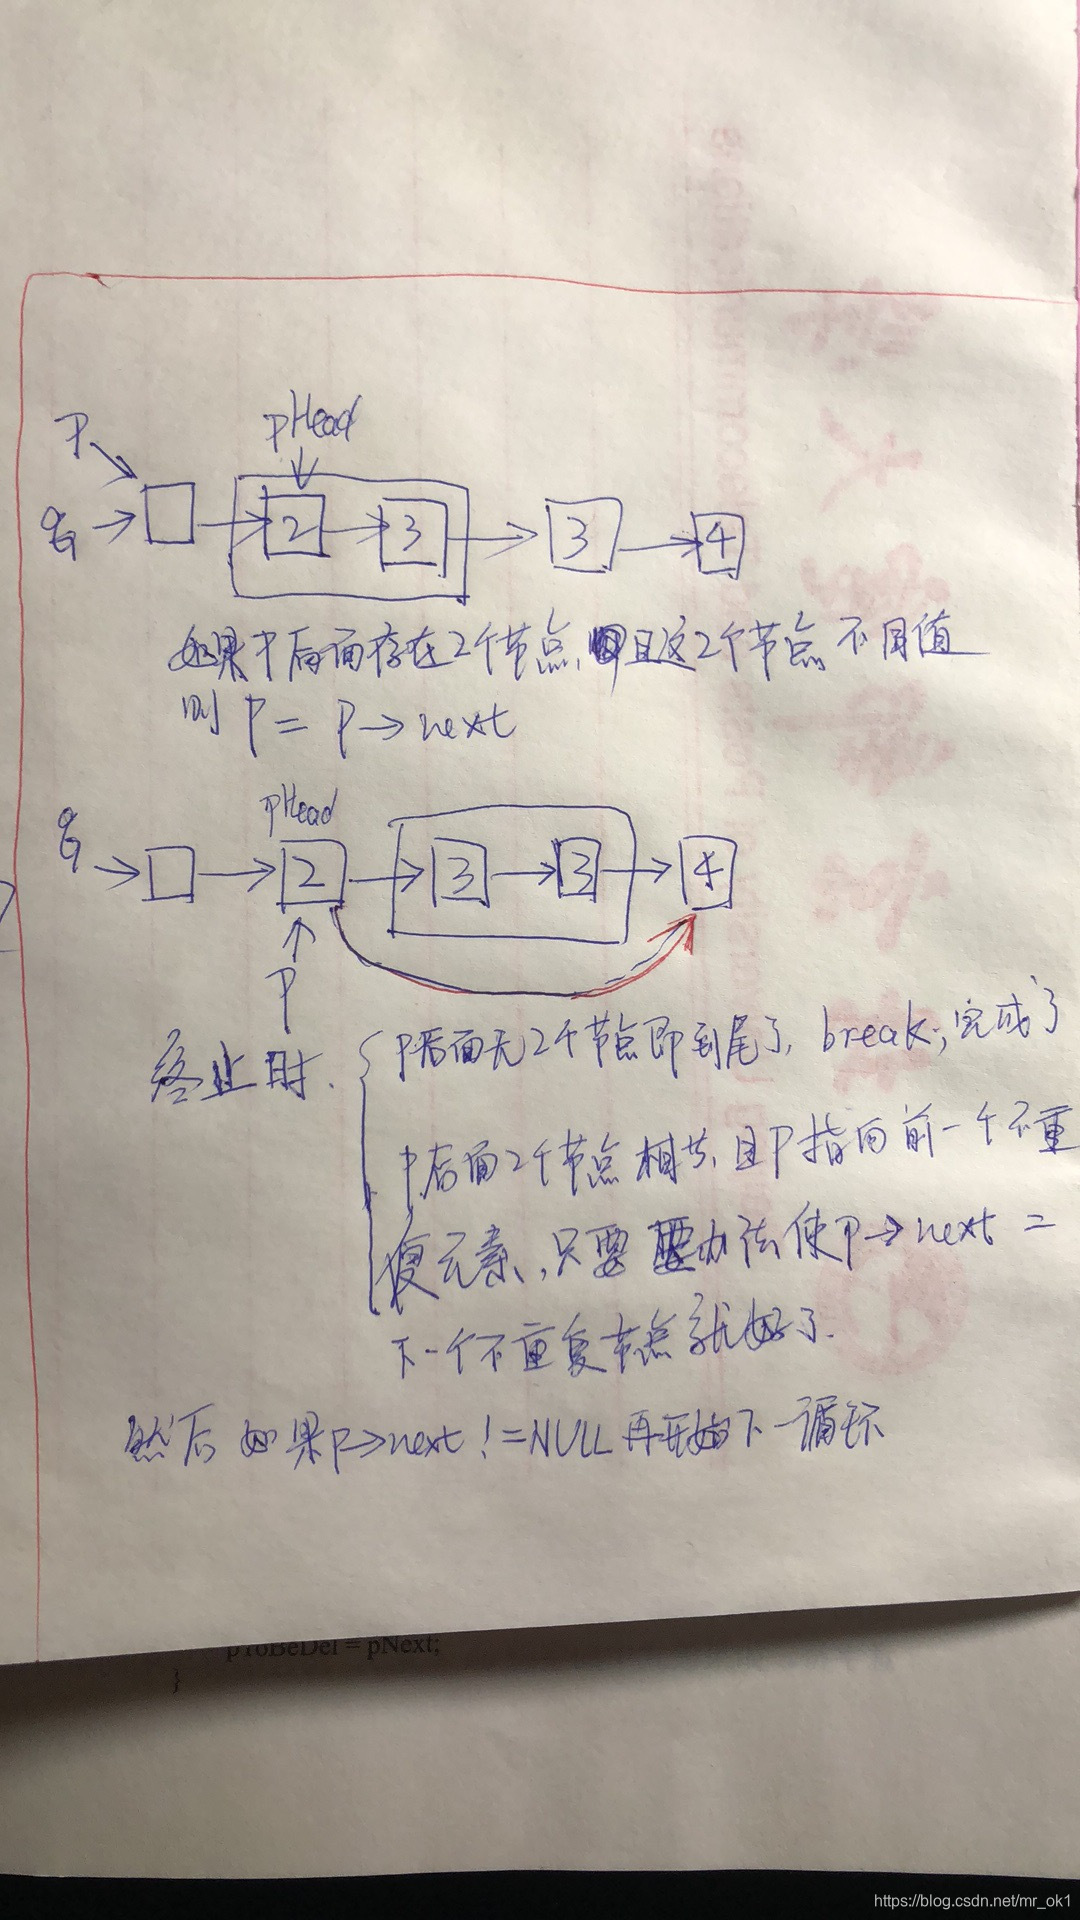 P
pHead
q
2
3
3
4
如果P后面存在2个节点，且这2个节点不同值
则 P = P→next
pHead
q
2
3
3
4
P
终止时.
P后面无2个节点即到尾了, break; 完成了
P后面2个节点相等, 且P指向前一个不重
复元素, 只要 办法使P→next =
下一个不重复节点就好了.
然后如果P→next != NULL 再开始下一循环
pToBeDel = pNext;
}
https://blog.csdn.net/mr_ok1